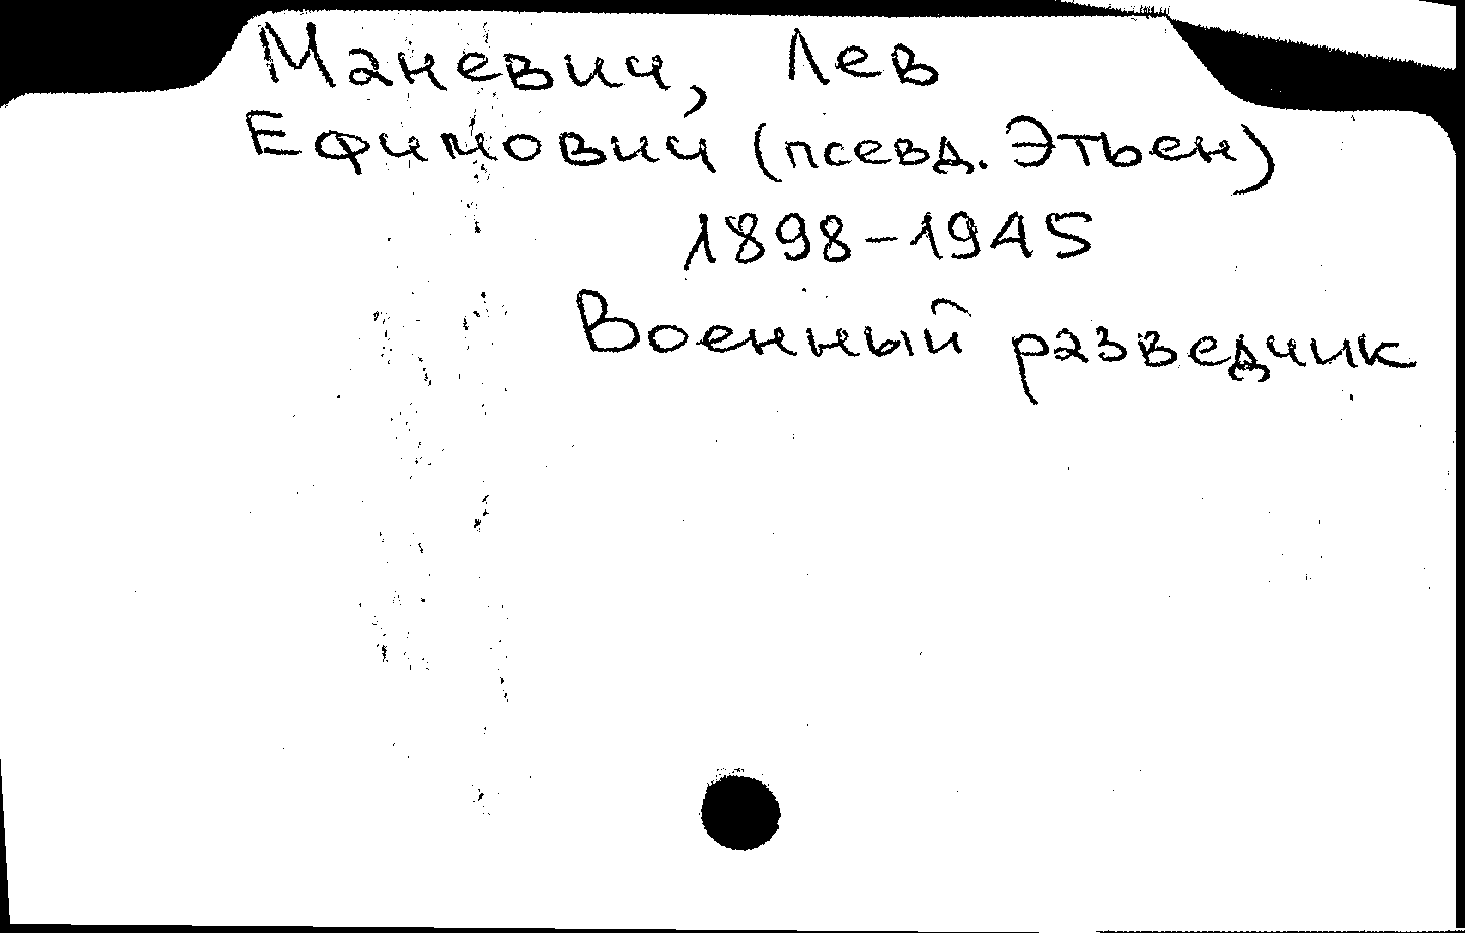 Маневич, Лев
Ефимович (псевд. Этьен)
1898-1945
Военный разведчик